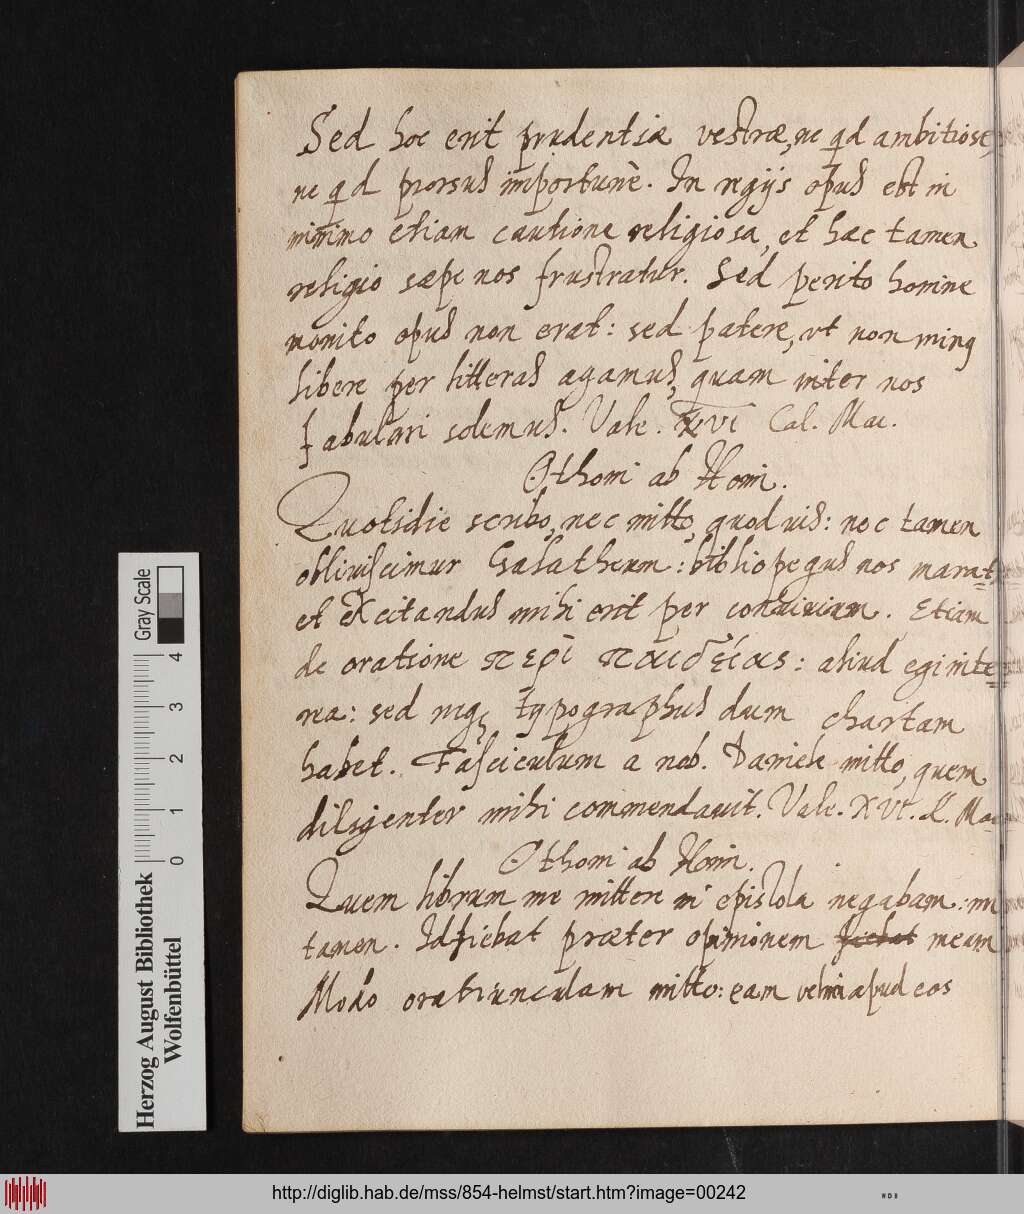 Sed hoc erit prudentiæ vestræ, ne qd ambitiose,
ne qd prorsus importunè. In regijs opus est in
minimo etiam cautione religiosa, et hæc tamen
religio sæpe nos frustratur. Sed perito homine
monito opus non erat: sed patere, vt non minq
libere per litteras agamus, quam inter nos
fabulari solemus. Vale. XVI Cal. Mai.
Othoni ab Hom.
Quotidie scribo, nec mitto, quod uis: nec tamen
obliuiscimur Galatheam: bibliopegus nos morat,
et excitandus mihi erit per conuiuium. Etiam
de oratione περὶ παιδείας: aliud egi inte
rea: sed neq typographus dum chartam
habet. Fasciculum a nob. Daniele mitto, quem
diligenter mihi commendauit. Vale. XVI. K. Mai
Othoni ab Hom.
Quem librum me mittere in epistola negabam: mi
tamen. Id fiebat præter opinionem fiebat meam
Modo oratiunculam mitto: eam velim apud eos
Gray Scale
4
3
2
1
0
Herzog August Bibliothek
Wolfenbüttel
http://diglib.hab.de/mss/854-helmst/start.htm?image=00242
WDB